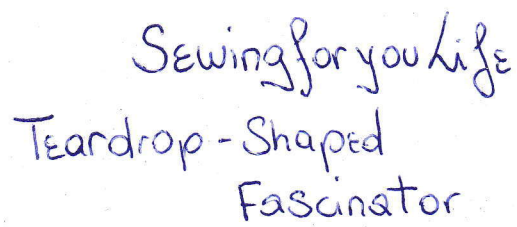 Sewing for you Life
Teardrop - Shaped
Fascinator